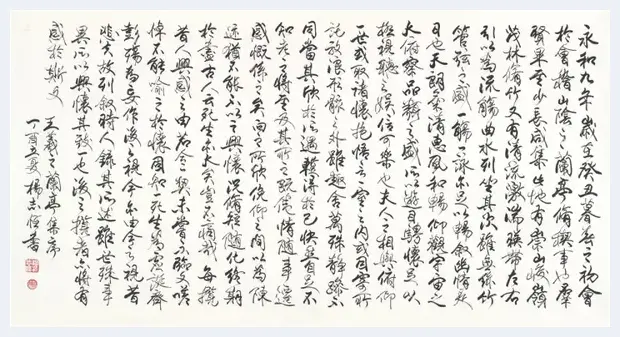 永和九年歲在癸丑暮春之初會
於會稽山陰之蘭亭脩禊事也羣
賢畢至少長咸集此地有崇山峻嶺
茂林脩竹又有清流激湍映帶左右
引以為流觴曲水列坐其次雖無絲竹
管弦之盛一觴一詠亦足以暢敘幽情是
日也天朗氣清惠風和暢仰觀宇宙之
大俯察品類之盛所以遊目騁懷足以
極視聽之娛信可樂也夫人之相與俯仰
一世或取諸懷抱悟言一室之內或因寄所
託放浪形骸之外雖趣舍萬殊靜躁不
同當其欣於所遇暫得於己快然自足不
知老之將至及其所之既倦情隨事遷
感慨係之矣向之所欣俛仰之間以為陳
迹猶不能不以之興懷況脩短隨化終期
於盡古人云死生亦大矣豈不痛哉每攬
昔人興感之由若合一契未嘗不臨文嗟
悼不能喻之於懷固知一死生為虛誕齊
彭殤為妄作後之視今亦由今之視昔
悲夫故列敘時人錄其所述雖世殊事
異所以興懷其致一也後之攬者亦將有
感於斯文
王羲之蘭亭集序
丁酉之夏楊志恆書